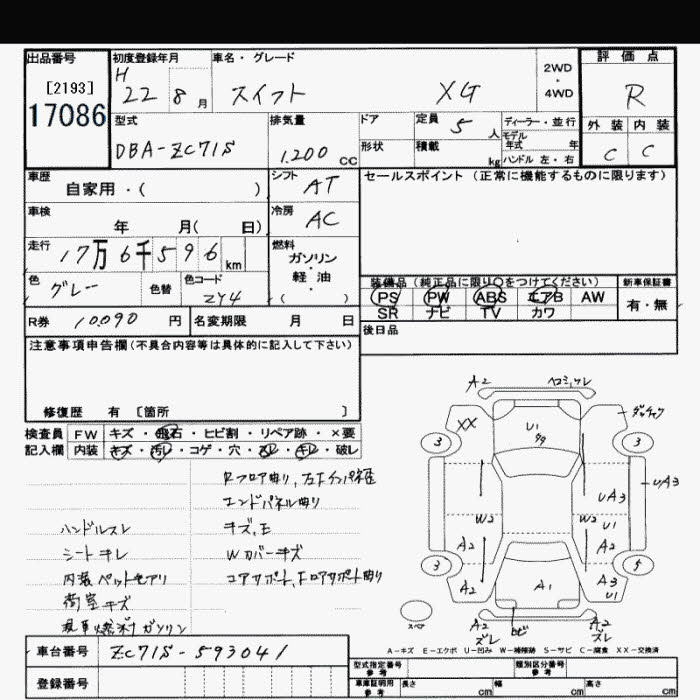 出品番号
[2193]
17086
初度登録年月
H 22 8 月
車名・グレード
スイフト XG
2WD
・
4WD
評価点
R
外装 内装
C C
型式
DBA-ZC71S
排気量
1.200 CC
ドア
形状
定員 5 人
積載 kg
ディーラー・並行
モデル年式 年
ハンドル 左・右
車歴
自家用・( )
シフト
AT
セールスポイント (正常に機能するものに限ります)
車検
年 月( 日)
冷房
AC
走行
17万6千596 km
燃料
ガソリン
・
軽油
( )
色
グレー
色替
色コード
ZY4
装備品 (純正品に限り○をつけてください)
PS PW ABS エアB AW
SR ナビ TV カワ
新車保証書
有・無
R券 10090 円
名変期限 月 日
後日品
注意事項申告欄 (不具合内容等は具体的に記入して下さい)
修復歴 有 [箇所 ]
検査員
記入欄
FW キズ・飛石・ヒビ割・リペア跡・×要
内装 キズ・汚レ・コゲ・穴・スレ・キレ・破レ
Rフロア曲り,
エンドパネル曲り
ハンドルスレ
キズ,E
シートキレ
Wカバーキズ
内装ペットモアリ
コアサポート,Fロアサポート曲り
荷室キズ
ガソリン
A2
XX
U1
3
3
UA3
UA3
W2
W2
U1
A2
A2
3
5
A2
A1
A3
U1
スペア
A2
スレ
サビ
A2
スレ
A-キズ E-エクボ U-凹み W-補修跡 S-サビ C-腐食 XX-交換済
車台番号
ZC71S-593041
登録番号
型式指定番号
参考
類別区分番号
参考
車庫証明用
参考
長さ cm
幅 cm
高さ cm